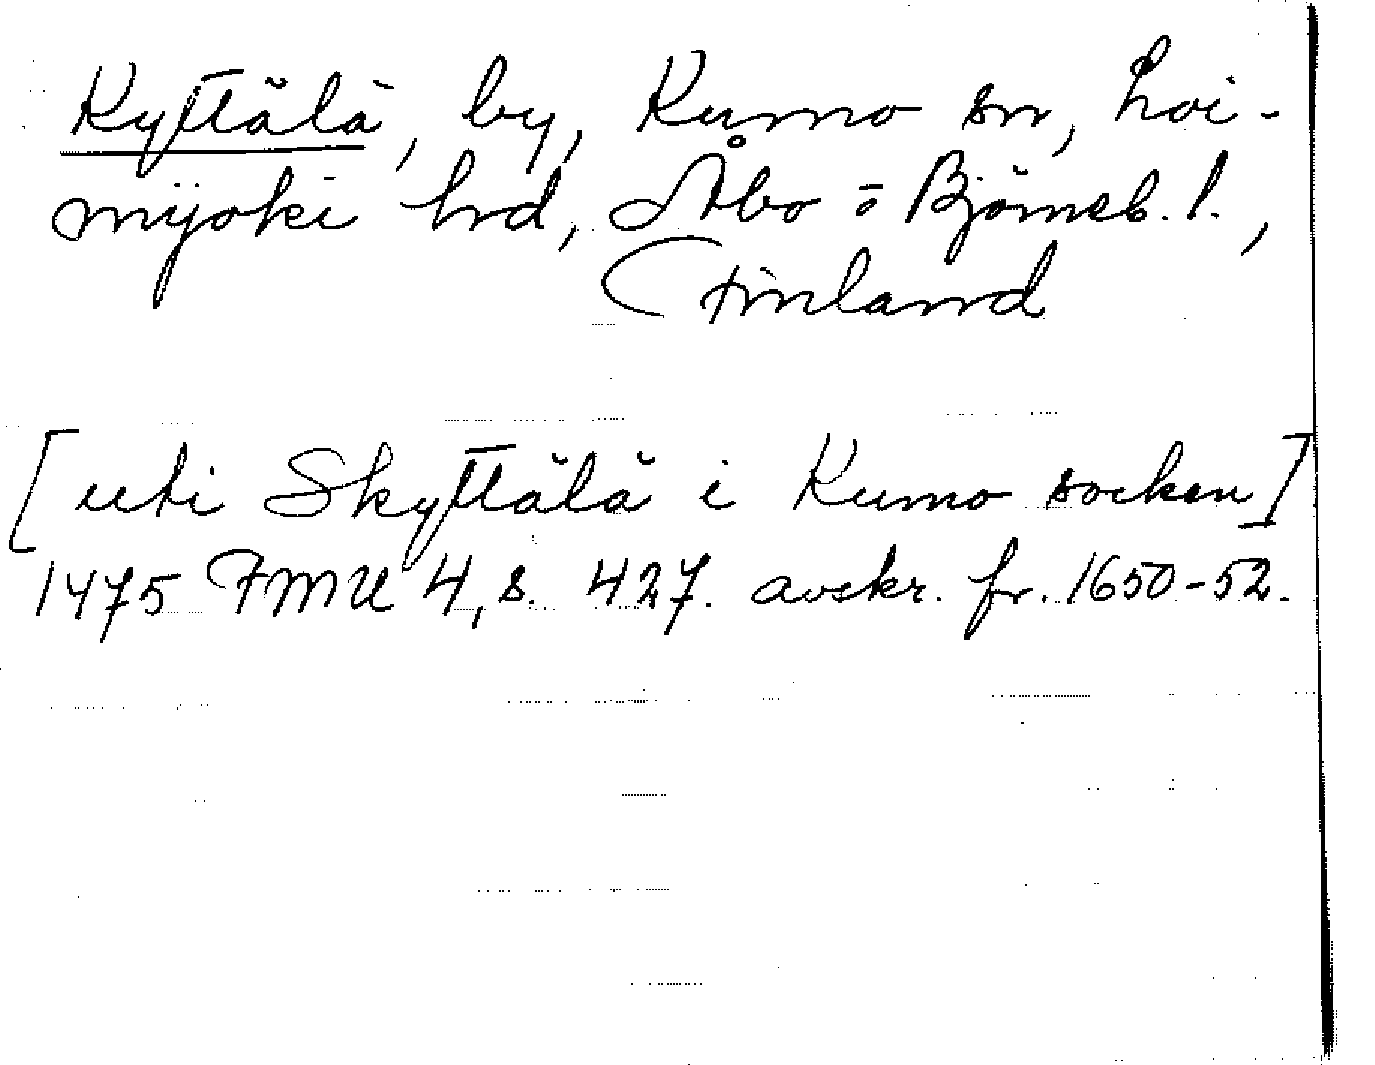 Kyttälä, by, Kumo sn, Loi-
mijoki hrd, Åbo = Björneb. l.,
Finland
[uti Skyttälä i Kumo socken]
1475 FMU 4, s. 427. avskr. fr. 1650-52.